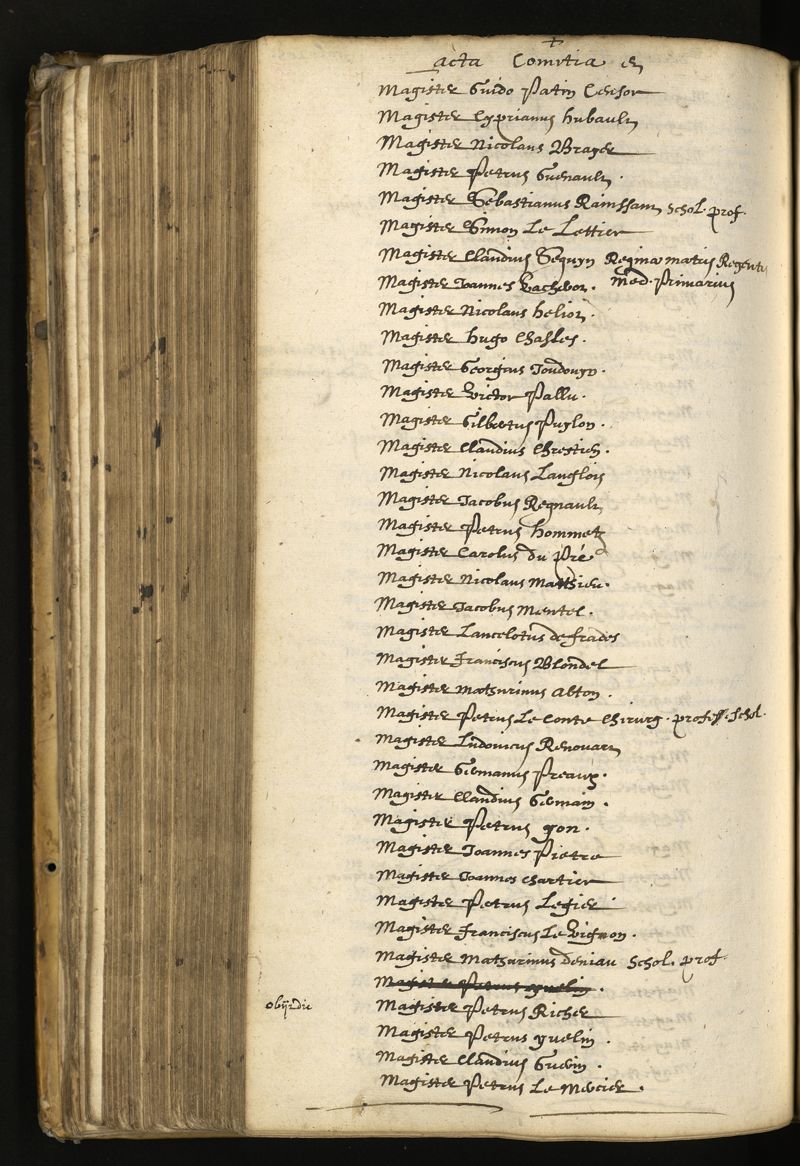 acta Comitia et
Magister Guido Patin Censor
Magister Cyprianus Hubault
Magister Nicolaus Brayer
Magister Petrus Guenault.
Magister Sebastianus Rainssant schol. prof.
Magister Simon Le Lettier
Magister Claudius Seguyn Reginæ matris Regentis
Magister Joannes Bachelor. Med. Primarius
Magister Nicolaus Heliot.
Magister Hugo Chasles.
Magister Georgius Joudouyn.
Magister Victor Pallu.
Magister Gilbertus Puylon.
Magister Claudius Chrestien.
Magister Nicolaus Langlois
Magister Jacobus Regnault
Magister Petrus Hommetz
Magister Carolus du Pré
Magister Nicolaus Matthieu.
Magister Jacobus Mentel.
Magister Lancelotus de frades
Magister Franciscus Blondel
Magister Mathurinus Alton.
Magister Petrus Le Conte Chirurg. profess. schol.
Magister Ludovicus Renouart
Magister Germanus Preaux.
Magister Claudius Germain.
Magister Petrus yon.
Magister Joannes Pietre
Magister Joannes Chartier
Magister Petrus Legier
Magister Franciscus Le Vignon.
Magister Mathurinus Deniau Schol. prof.
Magister Petrus yvelin.
obijt die Magister Petrus Richer
Magister Petrus yvelin.
Magister Claudius Guerin.
Magister Petrus Le Mercier.